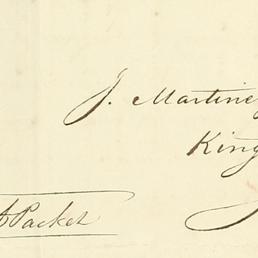 J. Martine
King
Packet